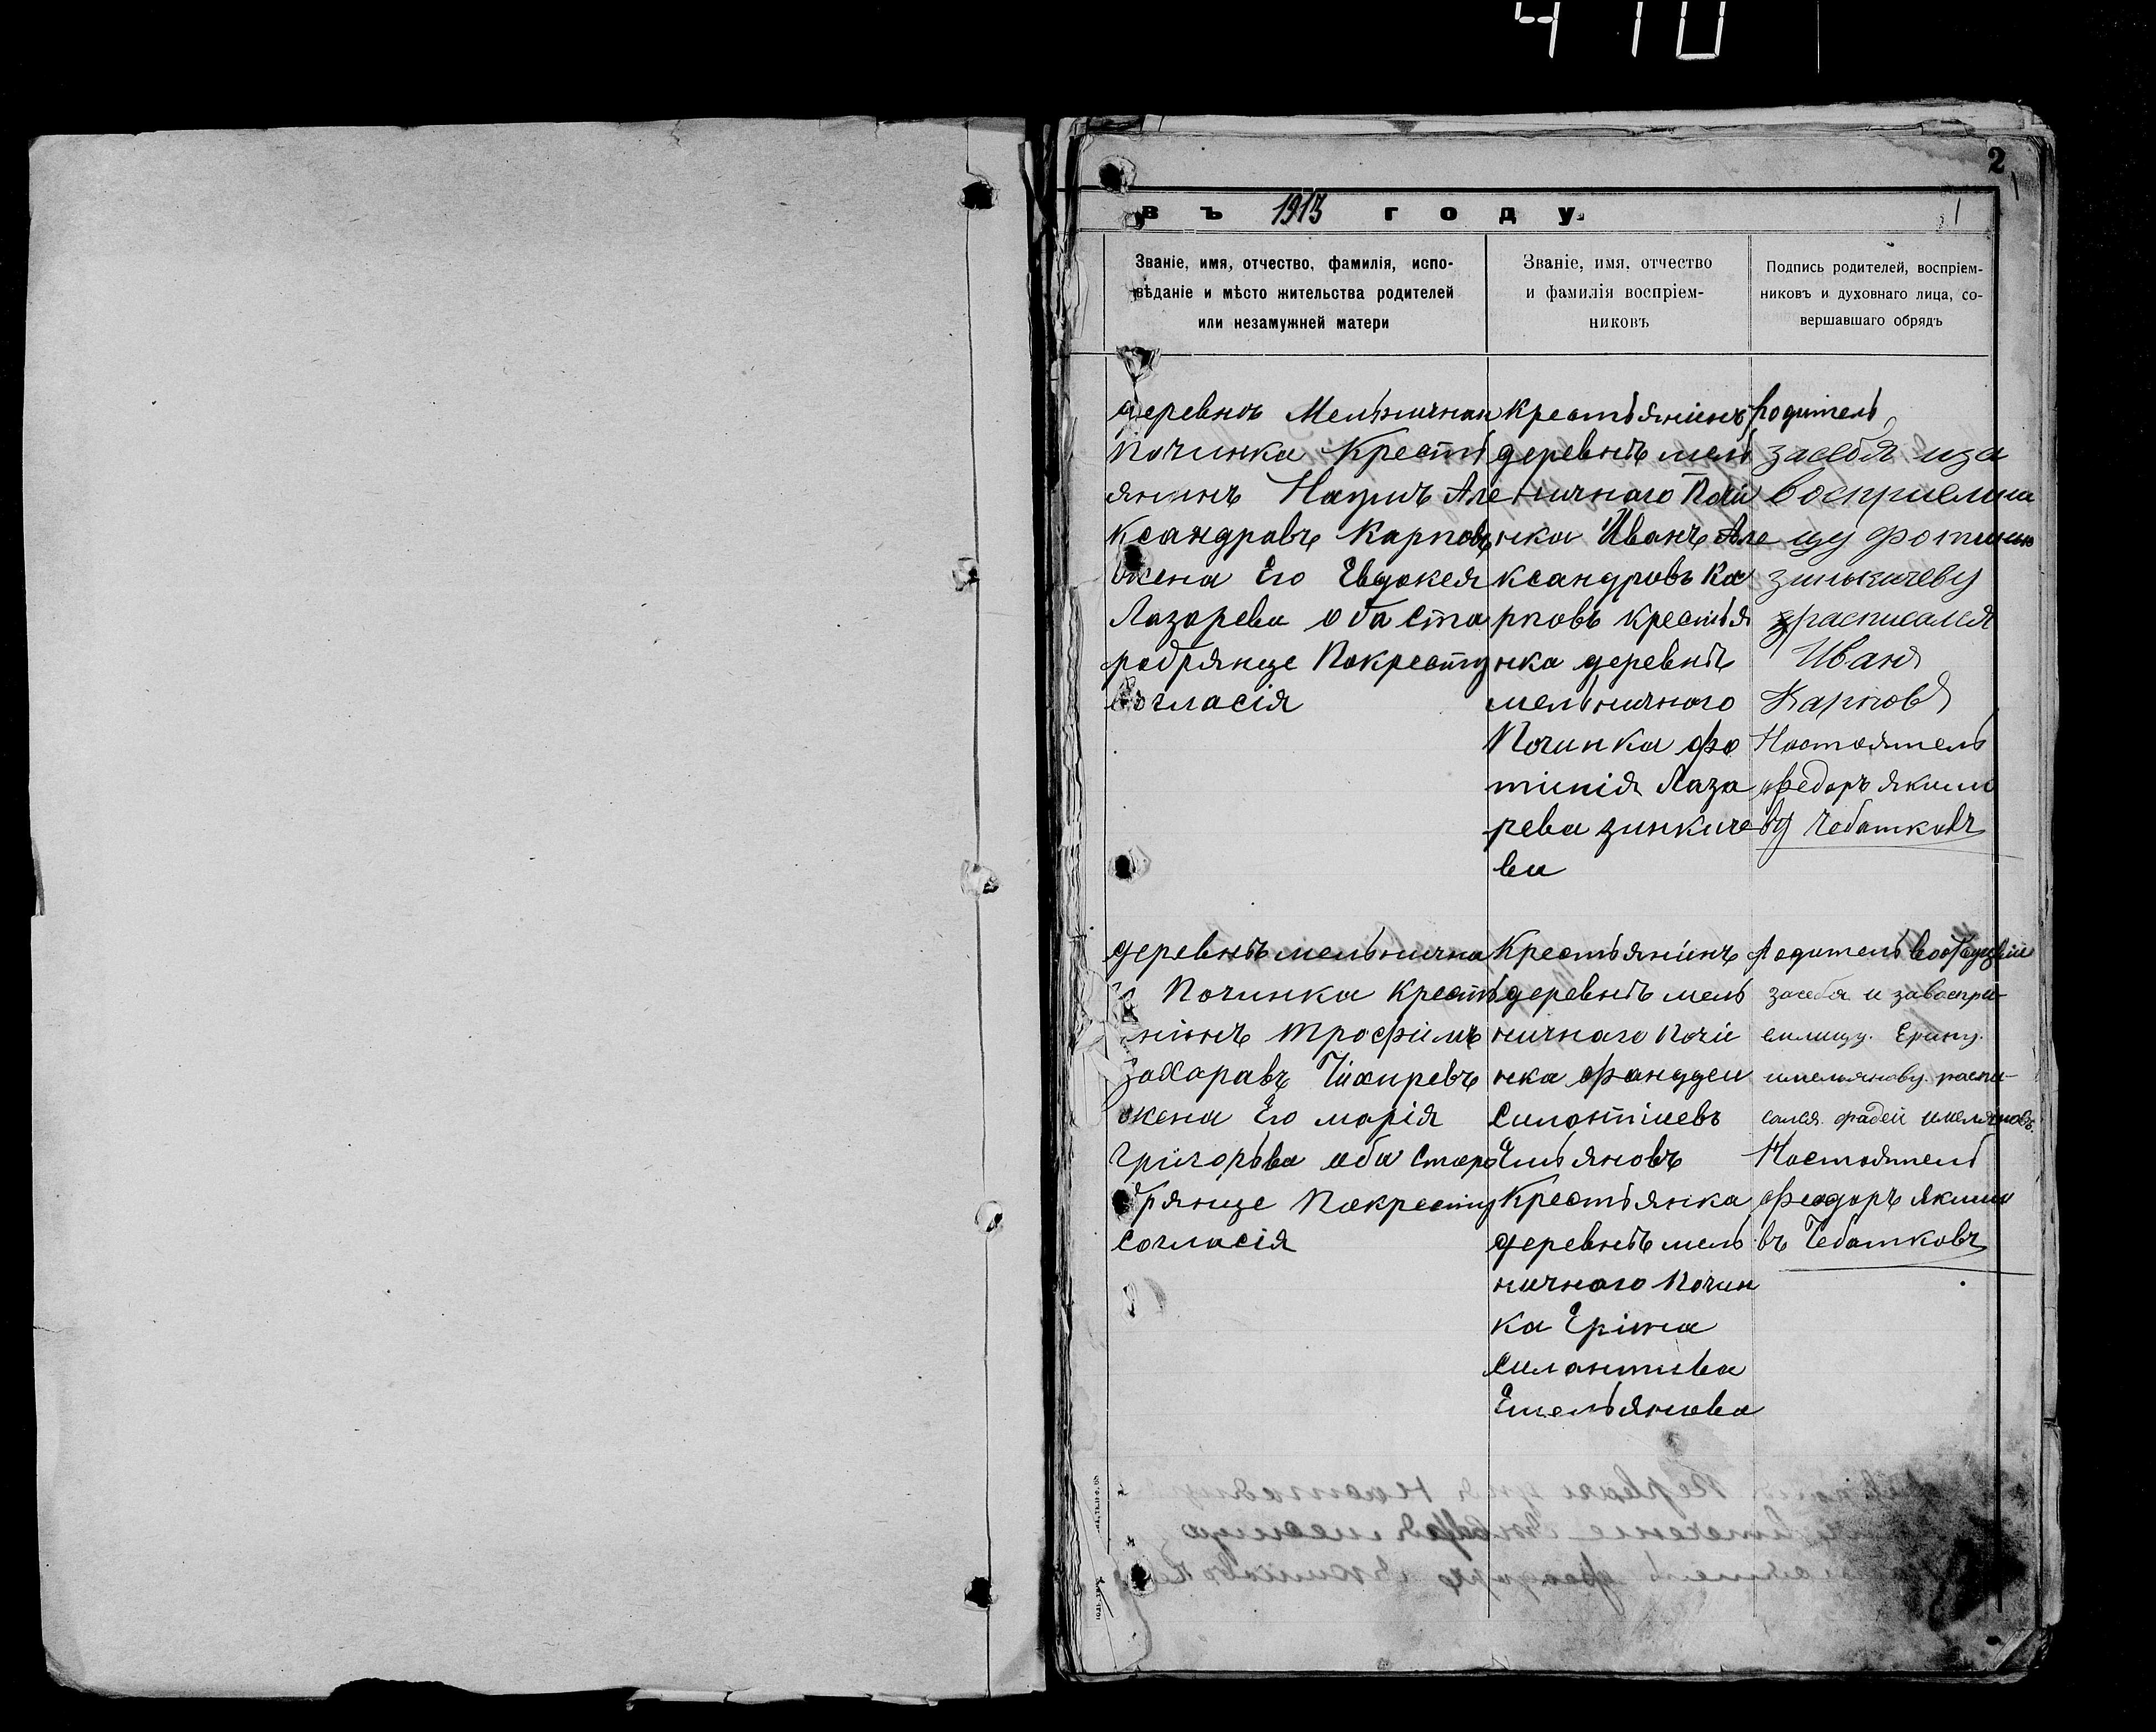 410
2
въ 1913 году.
1
Званіе, имя, отчество, фамилія, испо-
вѣданіе и мѣсто жительства родителей
или незамужней матери
Званіе, имя, отчество
и фамилія воспріем-
никовъ
Подпись родителей, воспріем-
никовъ и духовнаго лица, со-
вершавшаго обрядъ
деревнѣ Мельничнаи
Починка Кресть
янинъ Але
ксандравъ Карповъ
жена Его Евдокея
Лазарева оба Ста
робрянце Покресту
Согласія
Крестьянінъ
деревнѣ мель
ничнаго Почи
нка Иванъ Але
ксандровъ Ка
рповъ крестья
нка деревнѣ
мельничного
Починка Фо
тинія Лаза
рева зинкиче
ва
Родитель
засебя иза
восприемни
цу Фотинию
зинькичеву
расписался
Иванъ
Карповъ
Настоятель
Федоръ Якимо
въ Чебатковъ
деревнѣ мельнична
Починка Кресть
нінъ Трофимъ
Захаравъ
жена Его марія
Григорьва аба Старо
брянце Покресту
Согласія
Крестьянінъ
деревнѣ мель
ничнаго Почи
нка Фанддеи
Силантиевъ
Емльяновъ
Крестьянка
деревнѣ мель
ничнаго Почин
ка Еріна
Силантьева
Емельянова
Родитель
засебя и завоспри-
емницу. Ерину.
имельянову. распи-
салса. фадей имеляновъ.
Настоятель
Феодоръ Якимо
въ Чебатковъ